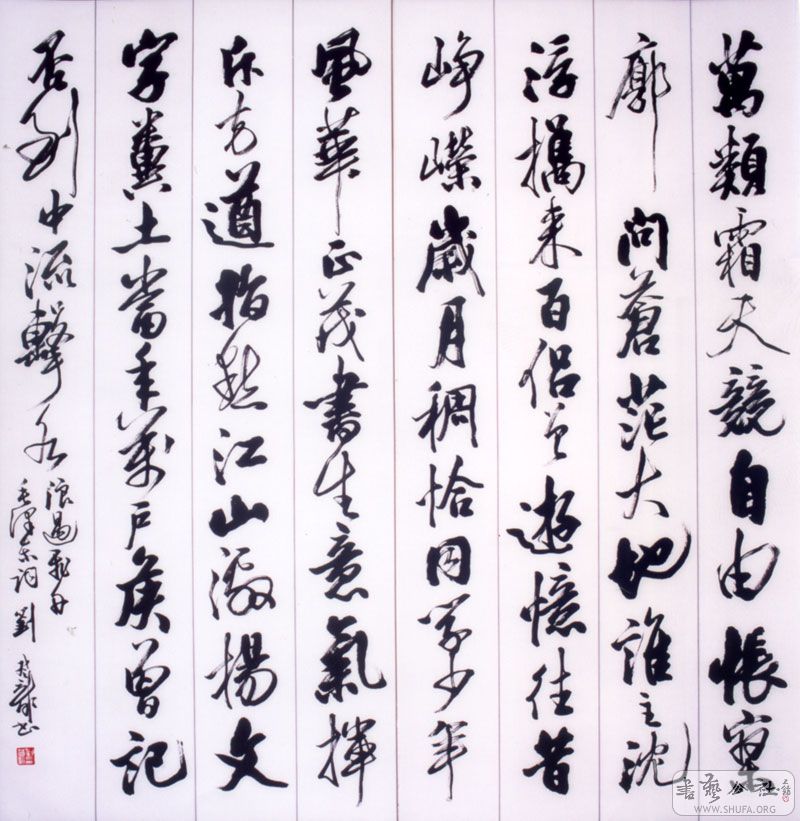 萬類霜天競自由悵寥
廓問蒼茫大地誰主沈
浮攜来百侣曾遊憶往昔
崢嶸歲月稠恰同学少年
風華正茂書生意氣揮
斥方遒指點江山激揚文
字糞土當年萬户侯曾記
否到中流擊水
浪遏飛舟
毛澤东詞 劉
書藝公社
WWW.SHUFA.ORG